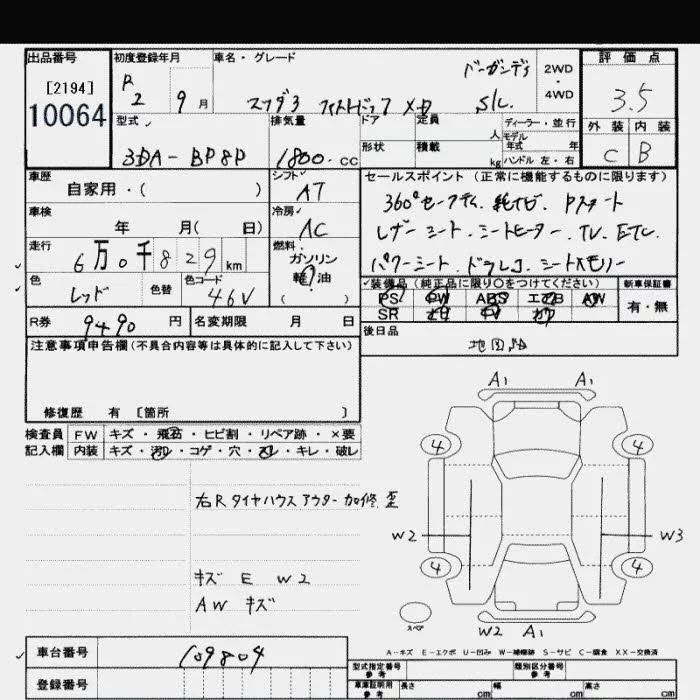 出品番号 初度登録年月 車名・グレード 評価点
[2194]
10064
R 2 9 月
マツダ3 ファストバック XD
バーガンディ S/L.
2WD・4WD
3.5
外装 内装
C B
型式 排気量 ドア 定員 ディーラー・並行
3DA-BP8P 1800 cc
形状 積載 人 kg
モデル年式 年
ハンドル 左・右
車歴 シフト セールスポイント (正常に機能するものに限ります)
自家用・( ) AT
360°セーフティ. 純ナビ. Pスタート
車検 冷房
年 月( 日) AC
レザーシート.シートヒーター.TV.ETC.
走行 燃料
6万0千829km
ガソリン
軽油
( )
パワーシート.ドラレコ.シートメモリー
色 色替 色コード
レッド 46V
装備品 (純正品に限り〇をつけてください) 新車保証書
PS PW ABS エアB AW
SR ナビ TV カワ
有・無
R券 9490 円 名変期限 月 日
後日品
地図
注意事項申告欄(不具合内容等は具体的に記入して下さい)
修復歴 有 [箇所 ]
検査員 FW キズ・飛石・ヒビ割・リペア跡・×要
記入欄 内装 キズ・汚レ・コゲ・穴・スレ・キレ・破レ
右Rタイヤハウスアウター加修.歪
キズ E W2
AW キズ
A1 A1
4 4
W2 W3
4 4
スペア
W2 A1
A-キズ E-エクボ U-凹み W-補修跡 S-サビ C-腐食 XX-交換済
車台番号 109804
登録番号
型式指定番号 参考 類別区分番号 参考
車庫証明用 参考 長さ cm 幅 cm 高さ cm